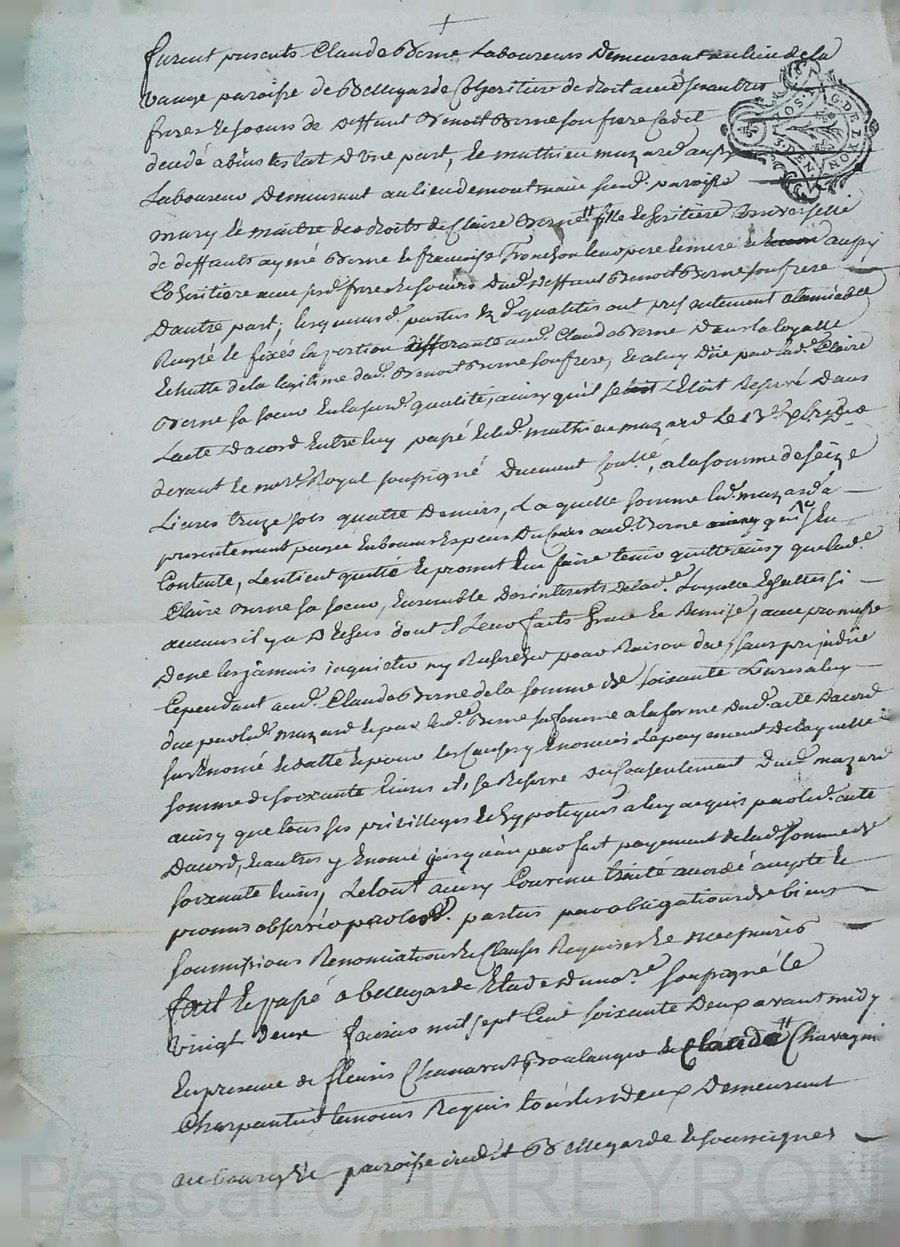 furent presents Claude Borne Laboureur Demeurant au lieu de la
paroisse de Bellegarde Coheritier de droit avec ses autres
freres et soeurs de deffunt Benoit Borne son frere cadet
decedé abintestat D'une part, Et mathieu muzard aussy
Laboureur Demeurant au lieu de paroisse
mary Et maitre des droits de Claire Borne fille heritiere universelle
de deffunts aymé Borne Et françoise Tronchon leurs pere Et mere Et aussy
Coheritiere avec ses frere Et soeurs dud. deffunt Benoit Borne son frere
D'autre part; lesquelles d. parties Ez d. qualités ont presentement alamiable
Reglé Et fixés la portion aud. Claude Borne Dans la
de la legitime dud. Benoit Borne son frere, Et a luy Due par lad. Claire
Borne sa soeur En lad. qualité, ainsy qu'il s'Etoit Reservé Dans
L'acte D'acord Entre luy passé Et led. mathieu muzard Le 13e
devant le not.re Royal soussigné Duement , a la somme de seize
Livres treze sols quatre Deniers, La quelle somme led. muzard a
presentement payée En bonnes Especes Du Cours aud. Borne qui s'En
Contente, L'en tient quitte Et promet L'en faire tenir quitte ainsy que lad.e
Claire Borne sa soeur, Ensemble Des interests De lad.e si
aucuns il y a D'Echus dont il Leur faits Grace Et Remise, avec promesse
De ne les jamais inquieter ny Rechercher pour Raison de ce, sans prejudice
Cependant aud. Claude Borne de la somme de soixante Livres a luy
due par led. muzard Et par lad.e Borne sa femme a la forme Dud. acte D'acord
sus Enoncé Et datté Et pour les Causes y Enoncés Le payement De laquelle
somme de soixante livres il se Reserve Du Consentement Dud. muzard
ainsy que tous ses privilleges Et hypoteques a luy acquis par led. acte
D'acord, Et autres y Enoncé jusqu'au parfait payement de lad. somme de
soixante livres, Le tout ainsy Convenu traité acordé accepté Et
promis observer par lesd. parties par obligations de biens
soumissions Renonciations Et Clauses Requises Et necessaires
fait Et passé a bellegarde Etude Du not.re soussigné le
vingt deux mil sept Cent soixante Deux avant midy
En presence de fleuris Chanavat Boulanger Et Claude Chavagni
Charpentier temoins Requis tous les deux Demeurant
au bourg Et paroisse dud.t Bellegarde Et soussignes
G. DE LYON
Pascal CHAREYRON